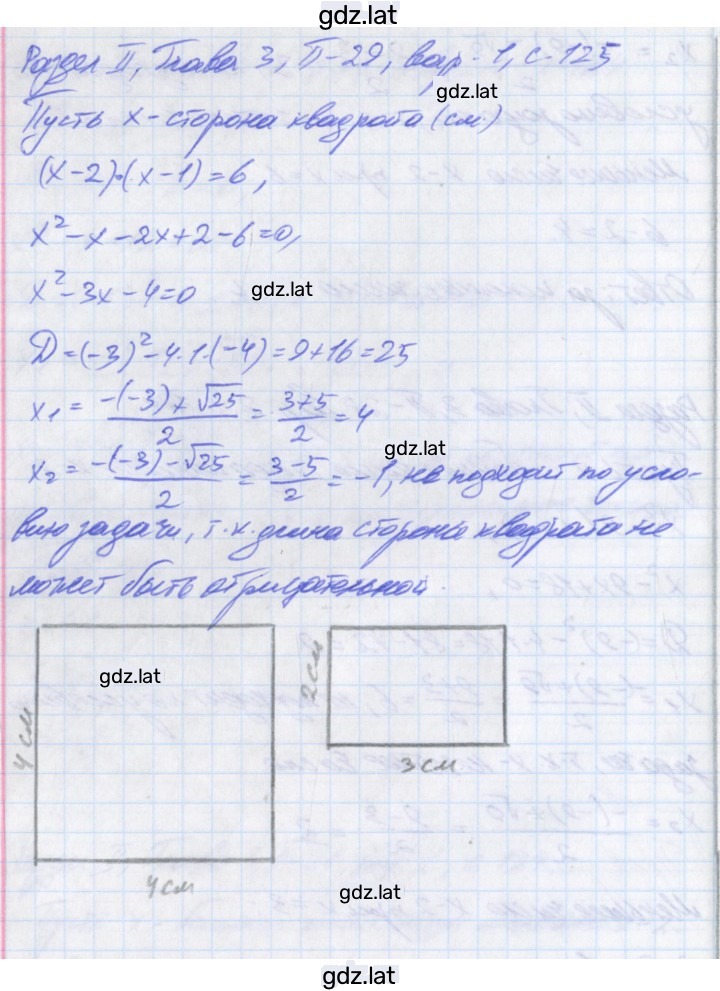 gdz.lat
Раздел II, Глава 3, П-29, вар-1, с-125
gdz.lat
Пусть x-сторона квадрата (см.)
(x-2)·(x-1)=6,
x²-x-2x+2-6=0,
x²-3x-4=0
gdz.lat
D=(-3)²-4·1·(-4)=9+16=25
x₁ = (-(-3)+√25)/2 = (3+5)/2 = 4
gdz.lat
x₂ = (-(-3)-√25)/2 = (3-5)/2 = -1, не подходит по усло-
вию задачи, т.к. длина стороны квадрата не
может быть отрицательной.
gdz.lat
4 см
4 см
2 см
3 см
gdz.lat
gdz.lat